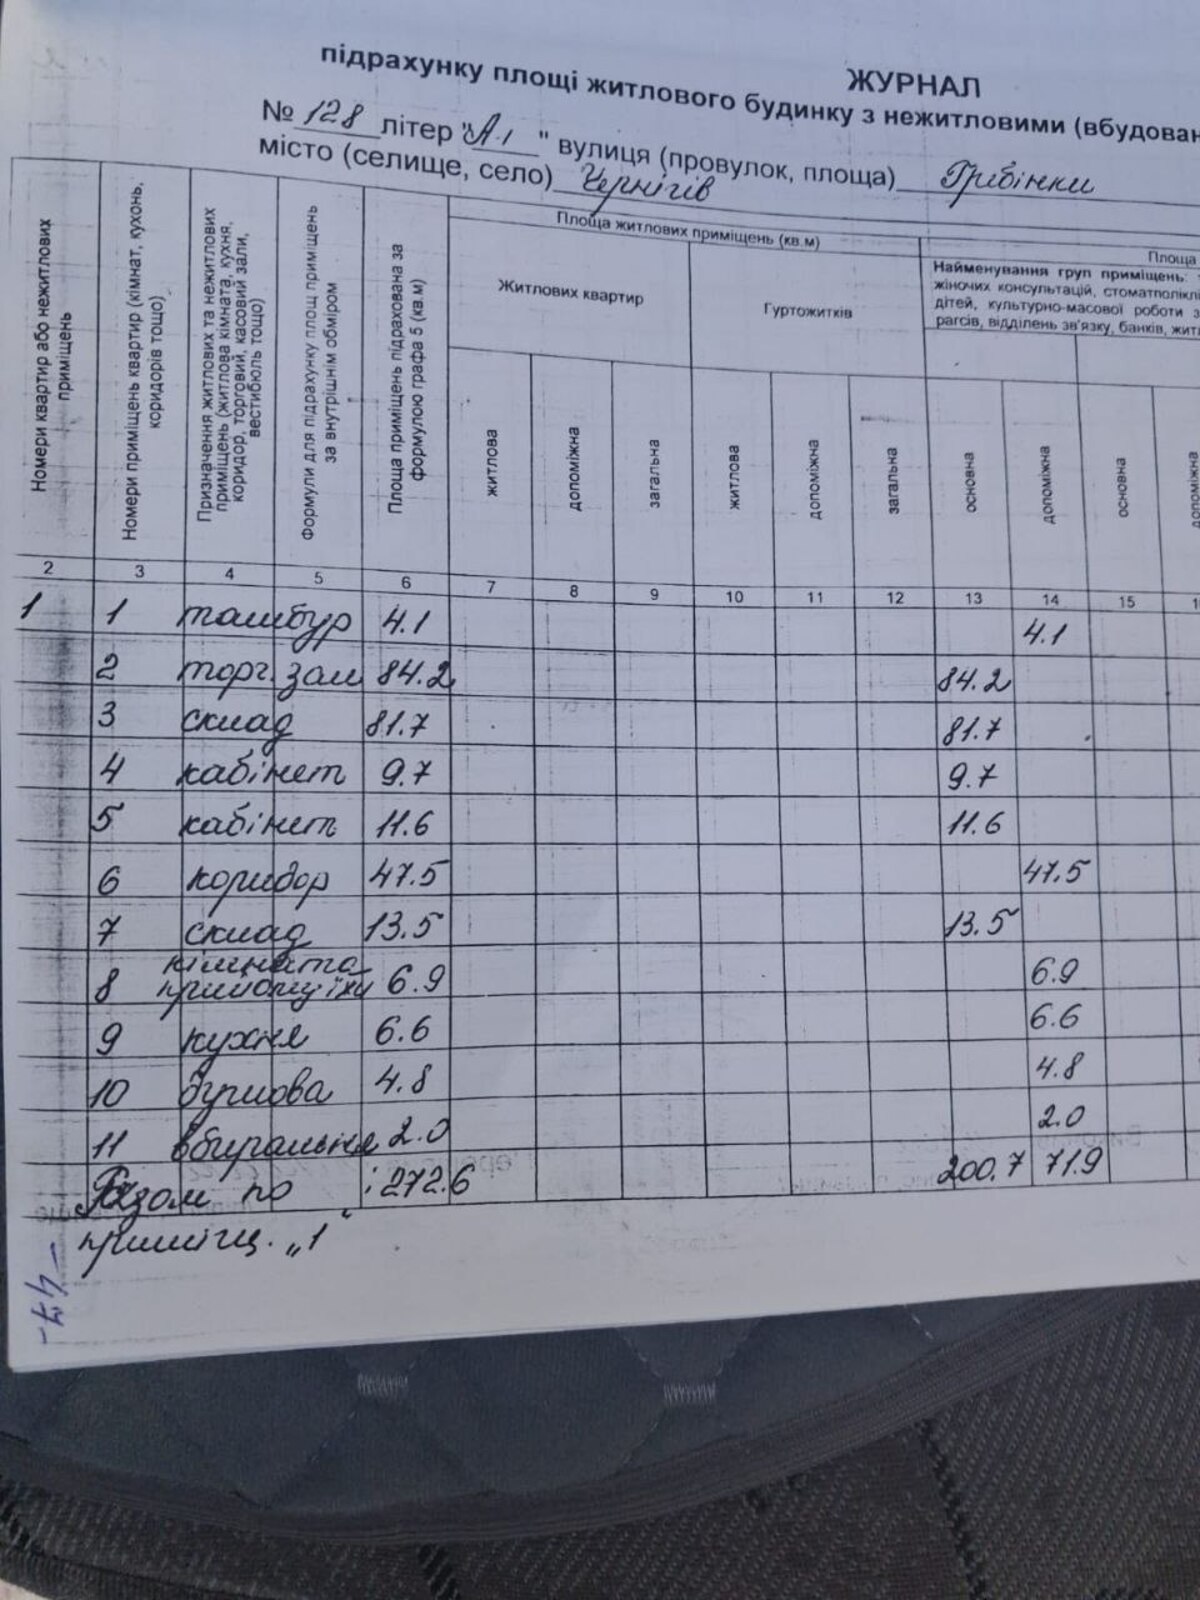 ЖУРНАЛ
підрахунку площі житлового будинку з нежитловими (вбудован
№ 128 літер "А-1" вулиця (провулок, площа) Грибінки
місто (селище, село) Чернігів
Номери квартир або нежитлових приміщень
Номери приміщень квартир (кімнат, кухонь, коридорів тощо)
Призначення житлових та нежитлових приміщень (житлова кімната, кухня, коридор, торговий, касовий зали, вестибюль тощо)
Формули для підрахунку площ приміщень за внутрішнім обміром
Площа приміщень підрахована за формулою графа 5 (кв.м)
Площа житлових приміщень (кв.м)
Площа
Житлових квартир
Гуртожитків
Найменування груп приміщень:
жіночих консультацій, стоматполіклі
дітей, культурно-масової роботи з
рагсів, відділень зв'язку, банків, жит
житлова допоміжна загальна житлова допоміжна загальна основна допоміжна основна допоміжна
2 3 4 5 6 7 8 9 10 11 12 13 14 15 1
1 1 тамбур 4.1 4.1
2 торг. зал 84.2 84.2
3 склад 81.7 81.7
4 кабінет 9.7 9.7
5 кабінет 11.6 11.6
6 коридор 47.5 47.5
7 склад 13.5 13.5
кімната
8 прийому їжі 6.9 6.9
9 кухня 6.6 6.6
10 душова 4.8 4.8
11 вбиральня 2.0 2.0
Разом по : 272.6 200.7 71.9
приміщ. „1"
- 47 -